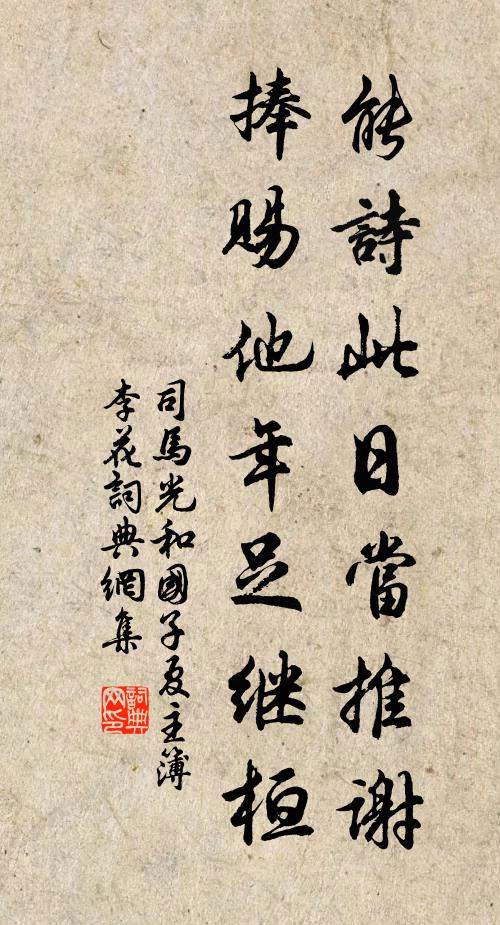 能詩此日當推謝
捧賜他年足继桓
司馬光和國子夏主簿
李花詞典網集
詞典
网印